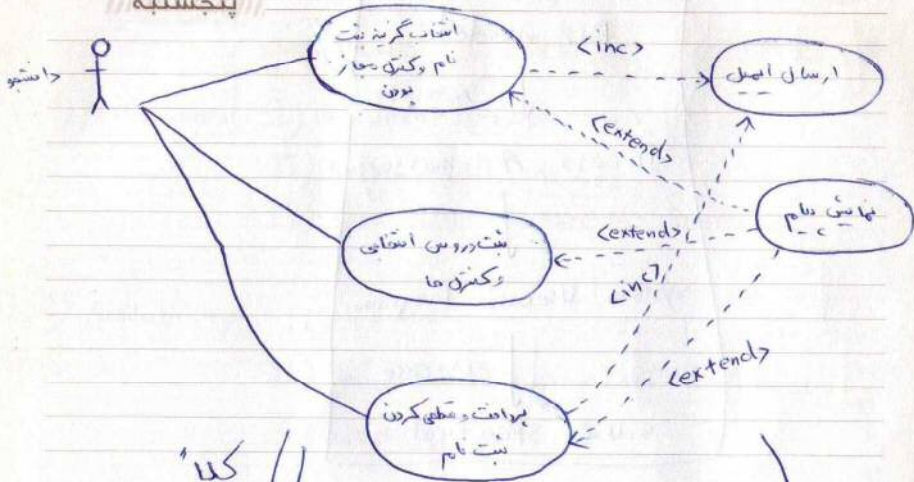 پنجشنبه
دانشجو
انتخاب گزینه ثبت
نام و کنترل مجاز
بودن
<inc>
ارسال ایمیل
<extend>
نمایش پیام
<extend>
ثبت دروس انتخابی
و کنترل ها
<inc>
<extend>
پرداخت و قطعی کردن
ثبت نام
کلاً